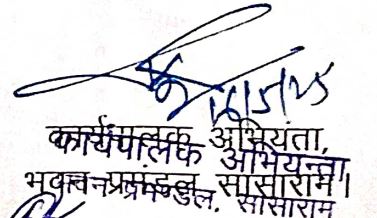 16/5/25
कार्यपालक अभियंता,
कार्यपालक अभियन्ता
भवन प्रमंडल, सासाराम।
भवन प्रमण्डल, सासाराम